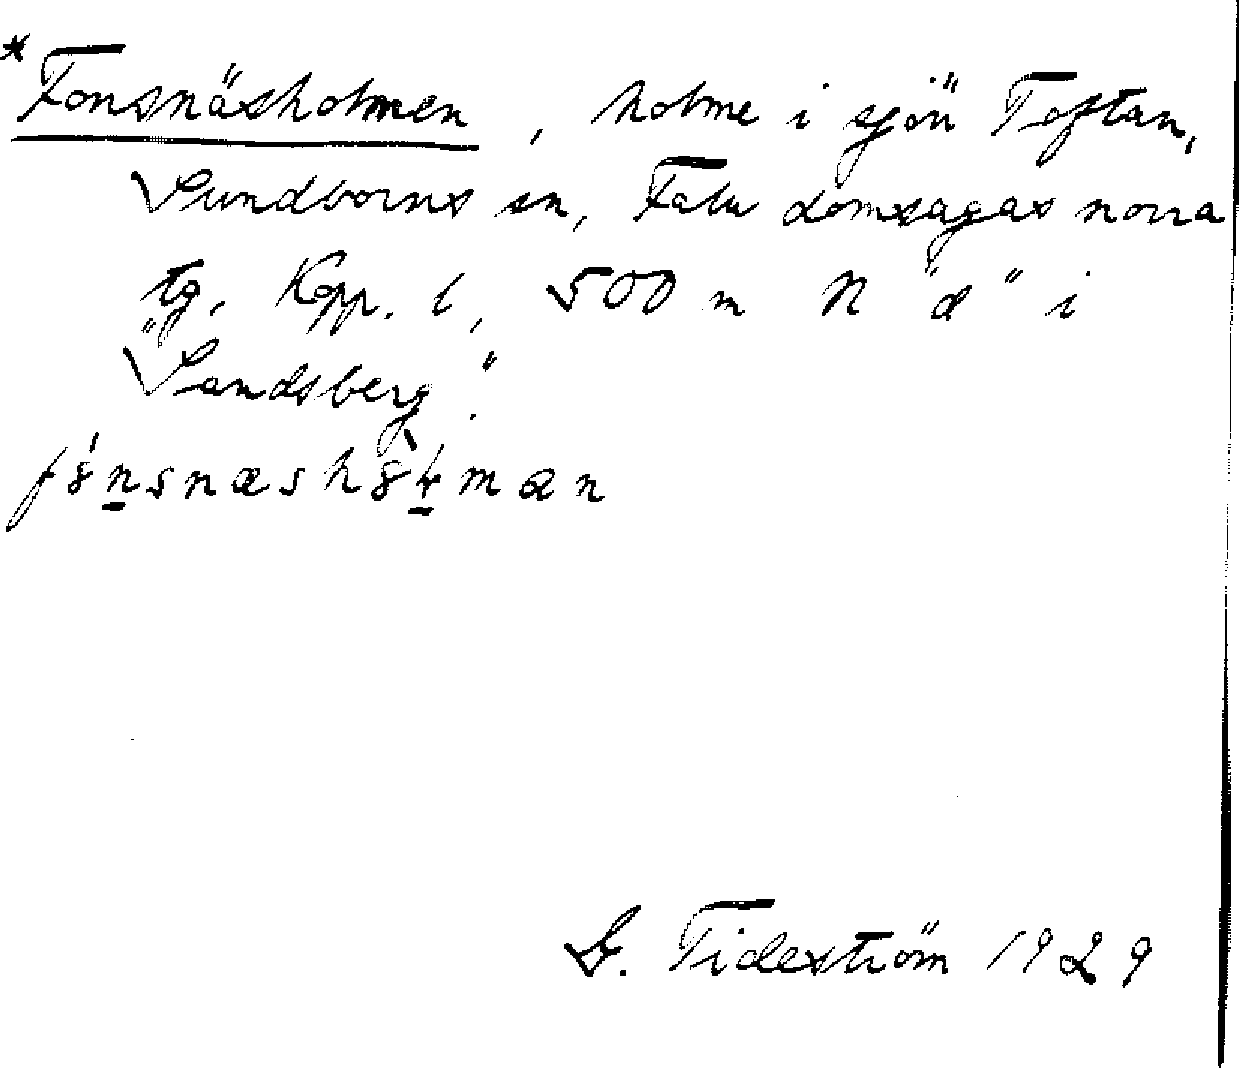 *Fonsnäsholmen, holme i sjön Toftan,
Sundborns sn, Falu domsagas norra
tg. Kopp. l, 500 m N "d" i
"Sandsberg".
G. Tideström 1929